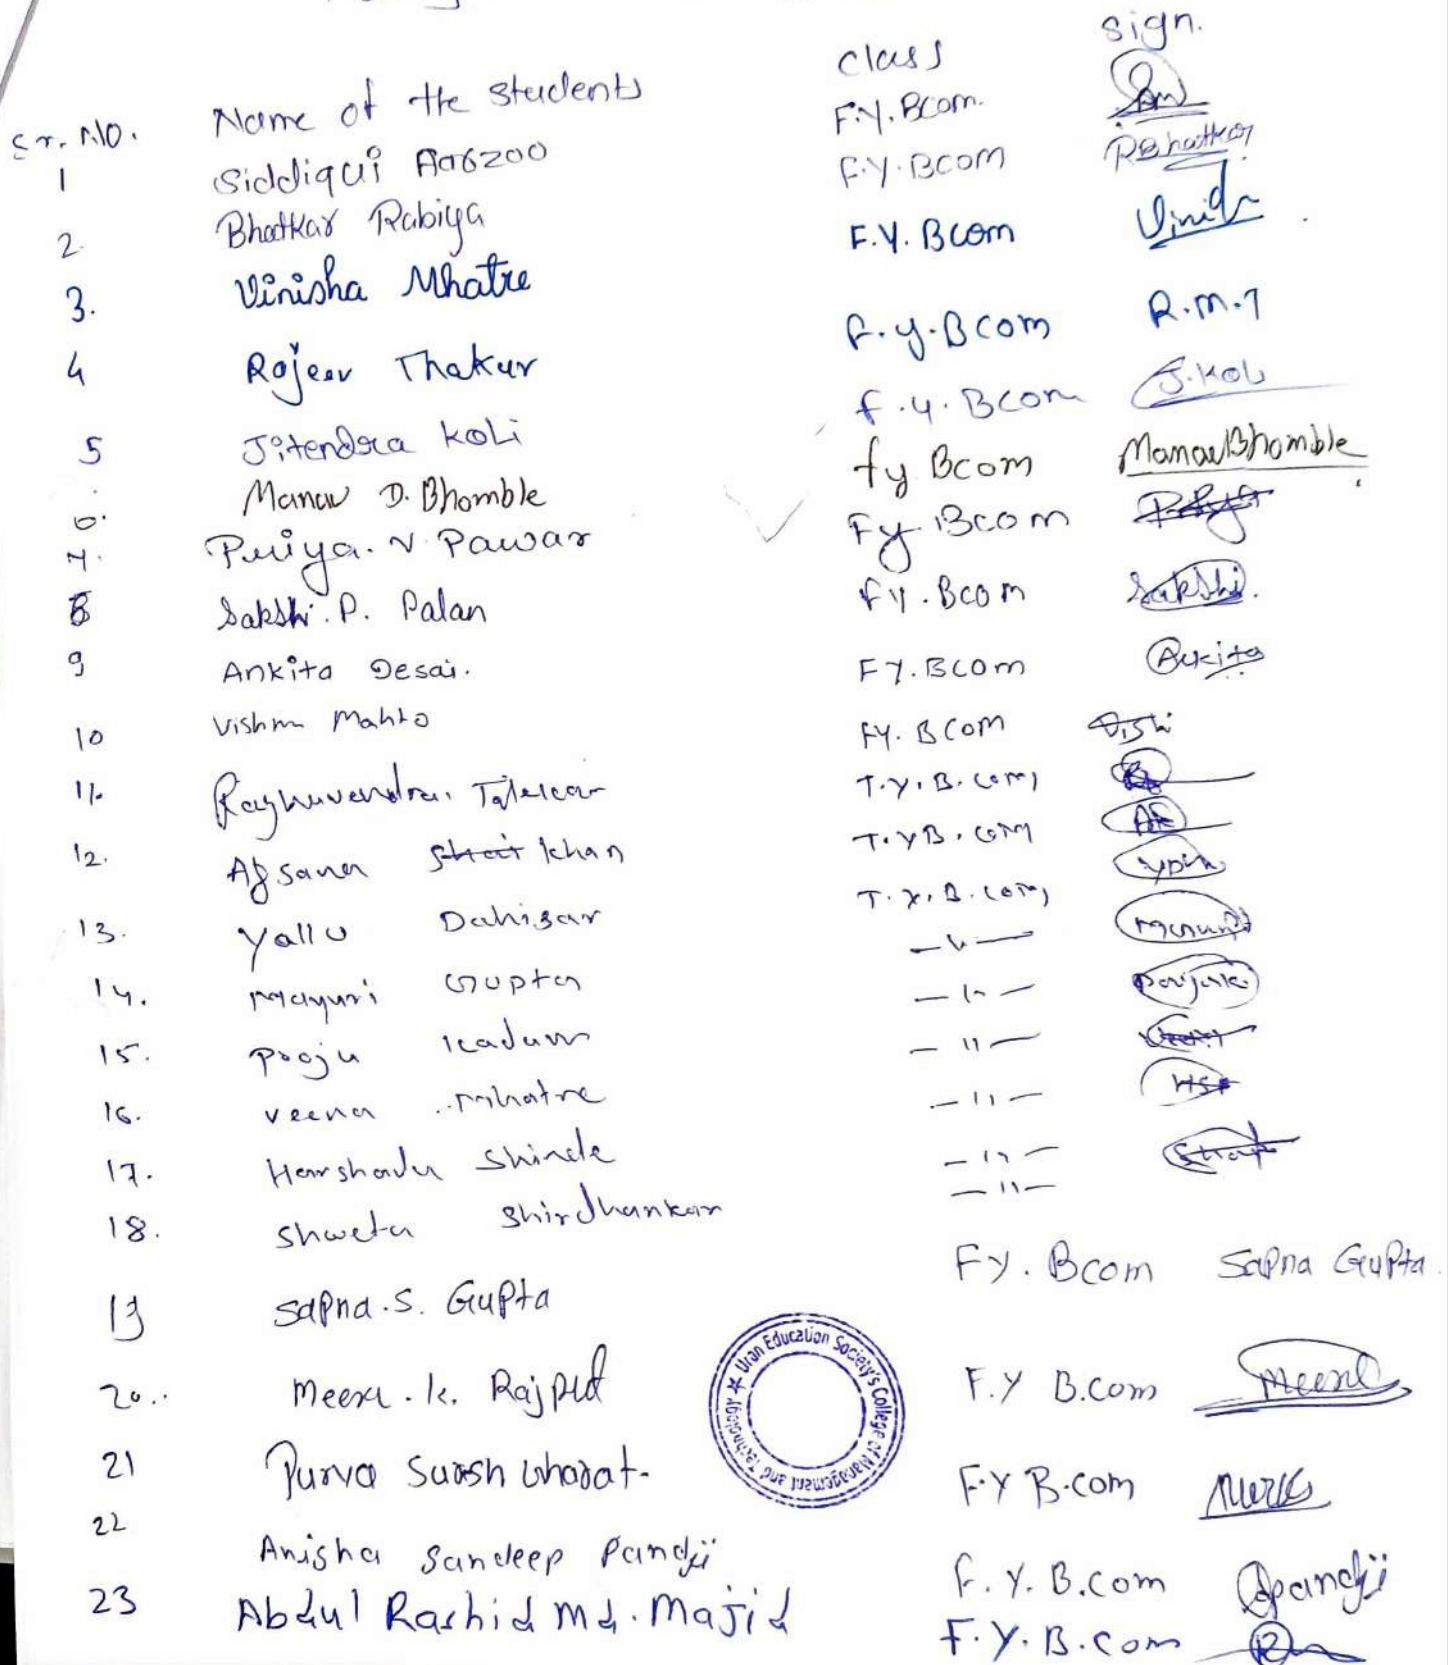 Sr. No. Name of the students class sign.
1 Siddiqui Aarzoo F.Y.Bcom.
2. Bhatkar Rabiya F.Y.Bcom RBhatkar
3. Vinisha Mhatre F.Y.Bcom
4 Rajeev Thakur F.y.Bcom R.M.T
5 Jitendra Koli F.y.Bcom J.Koli
6. Manav D. Bhomble fy Bcom Manav Bhomble
7. Priya. N. Pawar Fy Bcom
8 Sakshi. P. Palan FY.Bcom Sakshi
9 Ankita Desai. FY.BCOM Ankita
10 Vishnu Mahto FY.BCOM
11. Raghuvendra. T.Y.B.com
12. Afsana Khan T.Y B.com
13. Yallu Dahisar T.Y.B.com
14. mayuri Gupta —"—
15. pooja kadam —"—
16. veena mhatre —"—
17. Harshada Shinde —"—
18. Shweta Shirdhankar —"—
—"—
19 Sapna.S. Gupta FY.Bcom Sapna Gupta
20.. Meena. k. Rajput F.Y B.com Meena
21 Purva Suresh Gharat- F.Y B.com
22 Anisha Sandeep Pandji F.Y.B.com Apandji
23 Abdul Rashid Md. Majid F.Y.B.com
★ Uran Education Society's College of Management and Technology